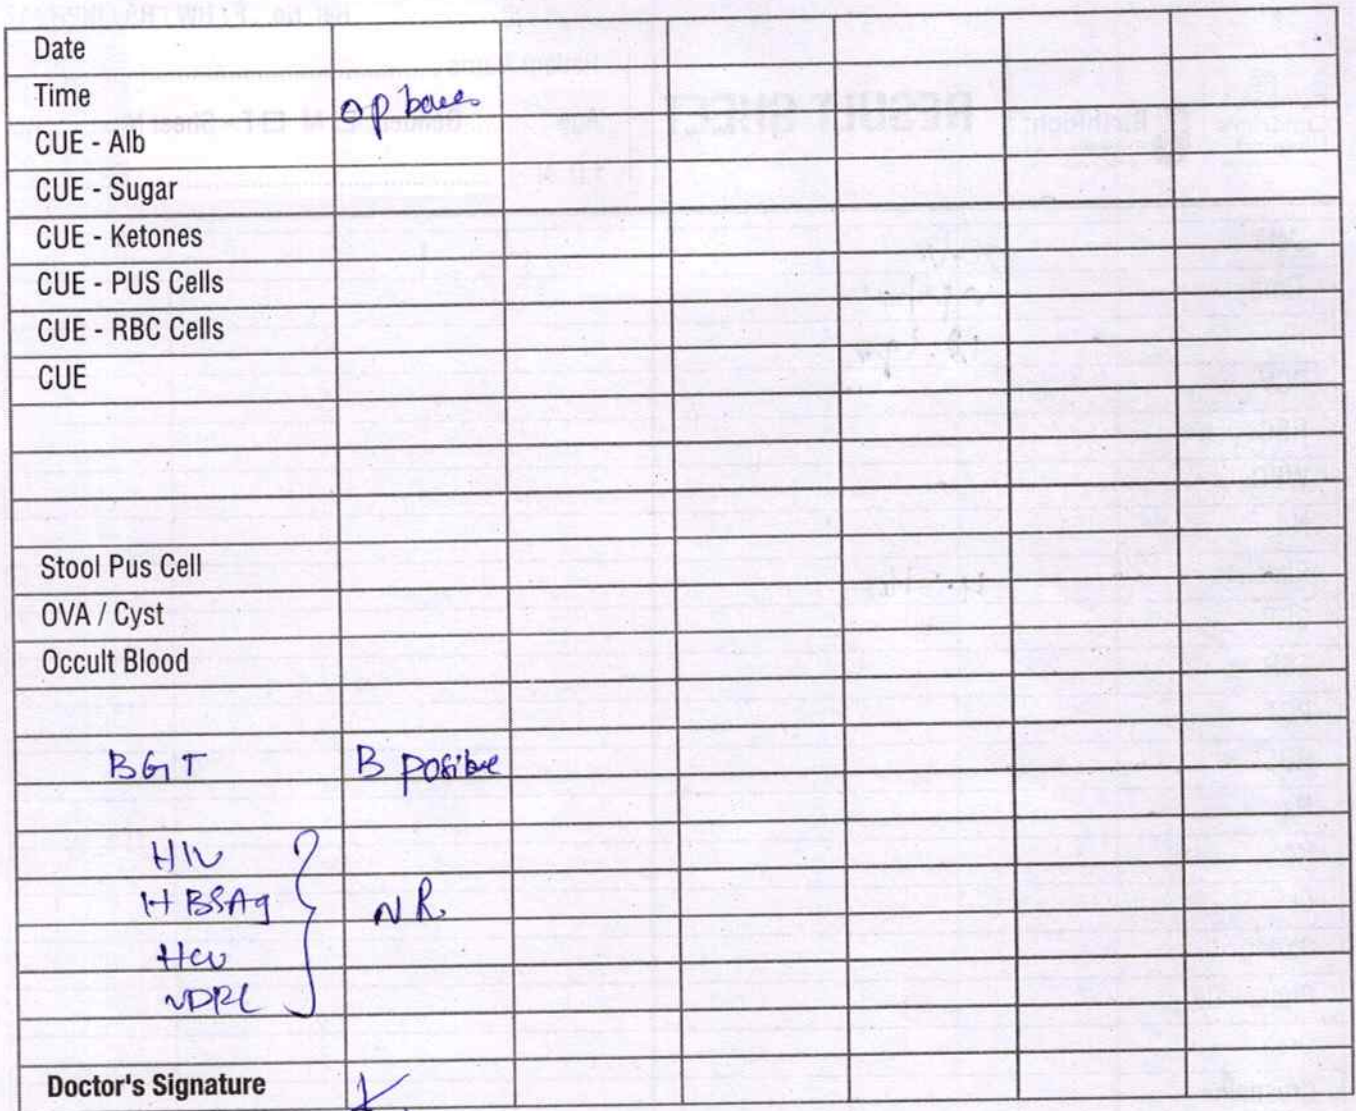 Date
Time OP bases
CUE - Alb
CUE - Sugar
CUE - Ketones
CUE - PUS Cells
CUE - RBC Cells
CUE
Stool Pus Cell
OVA / Cyst
Occult Blood
BGT B positive
HIV
HBSAg NR
HCV
VDRL
Doctor's Signature
RESULT SHEET